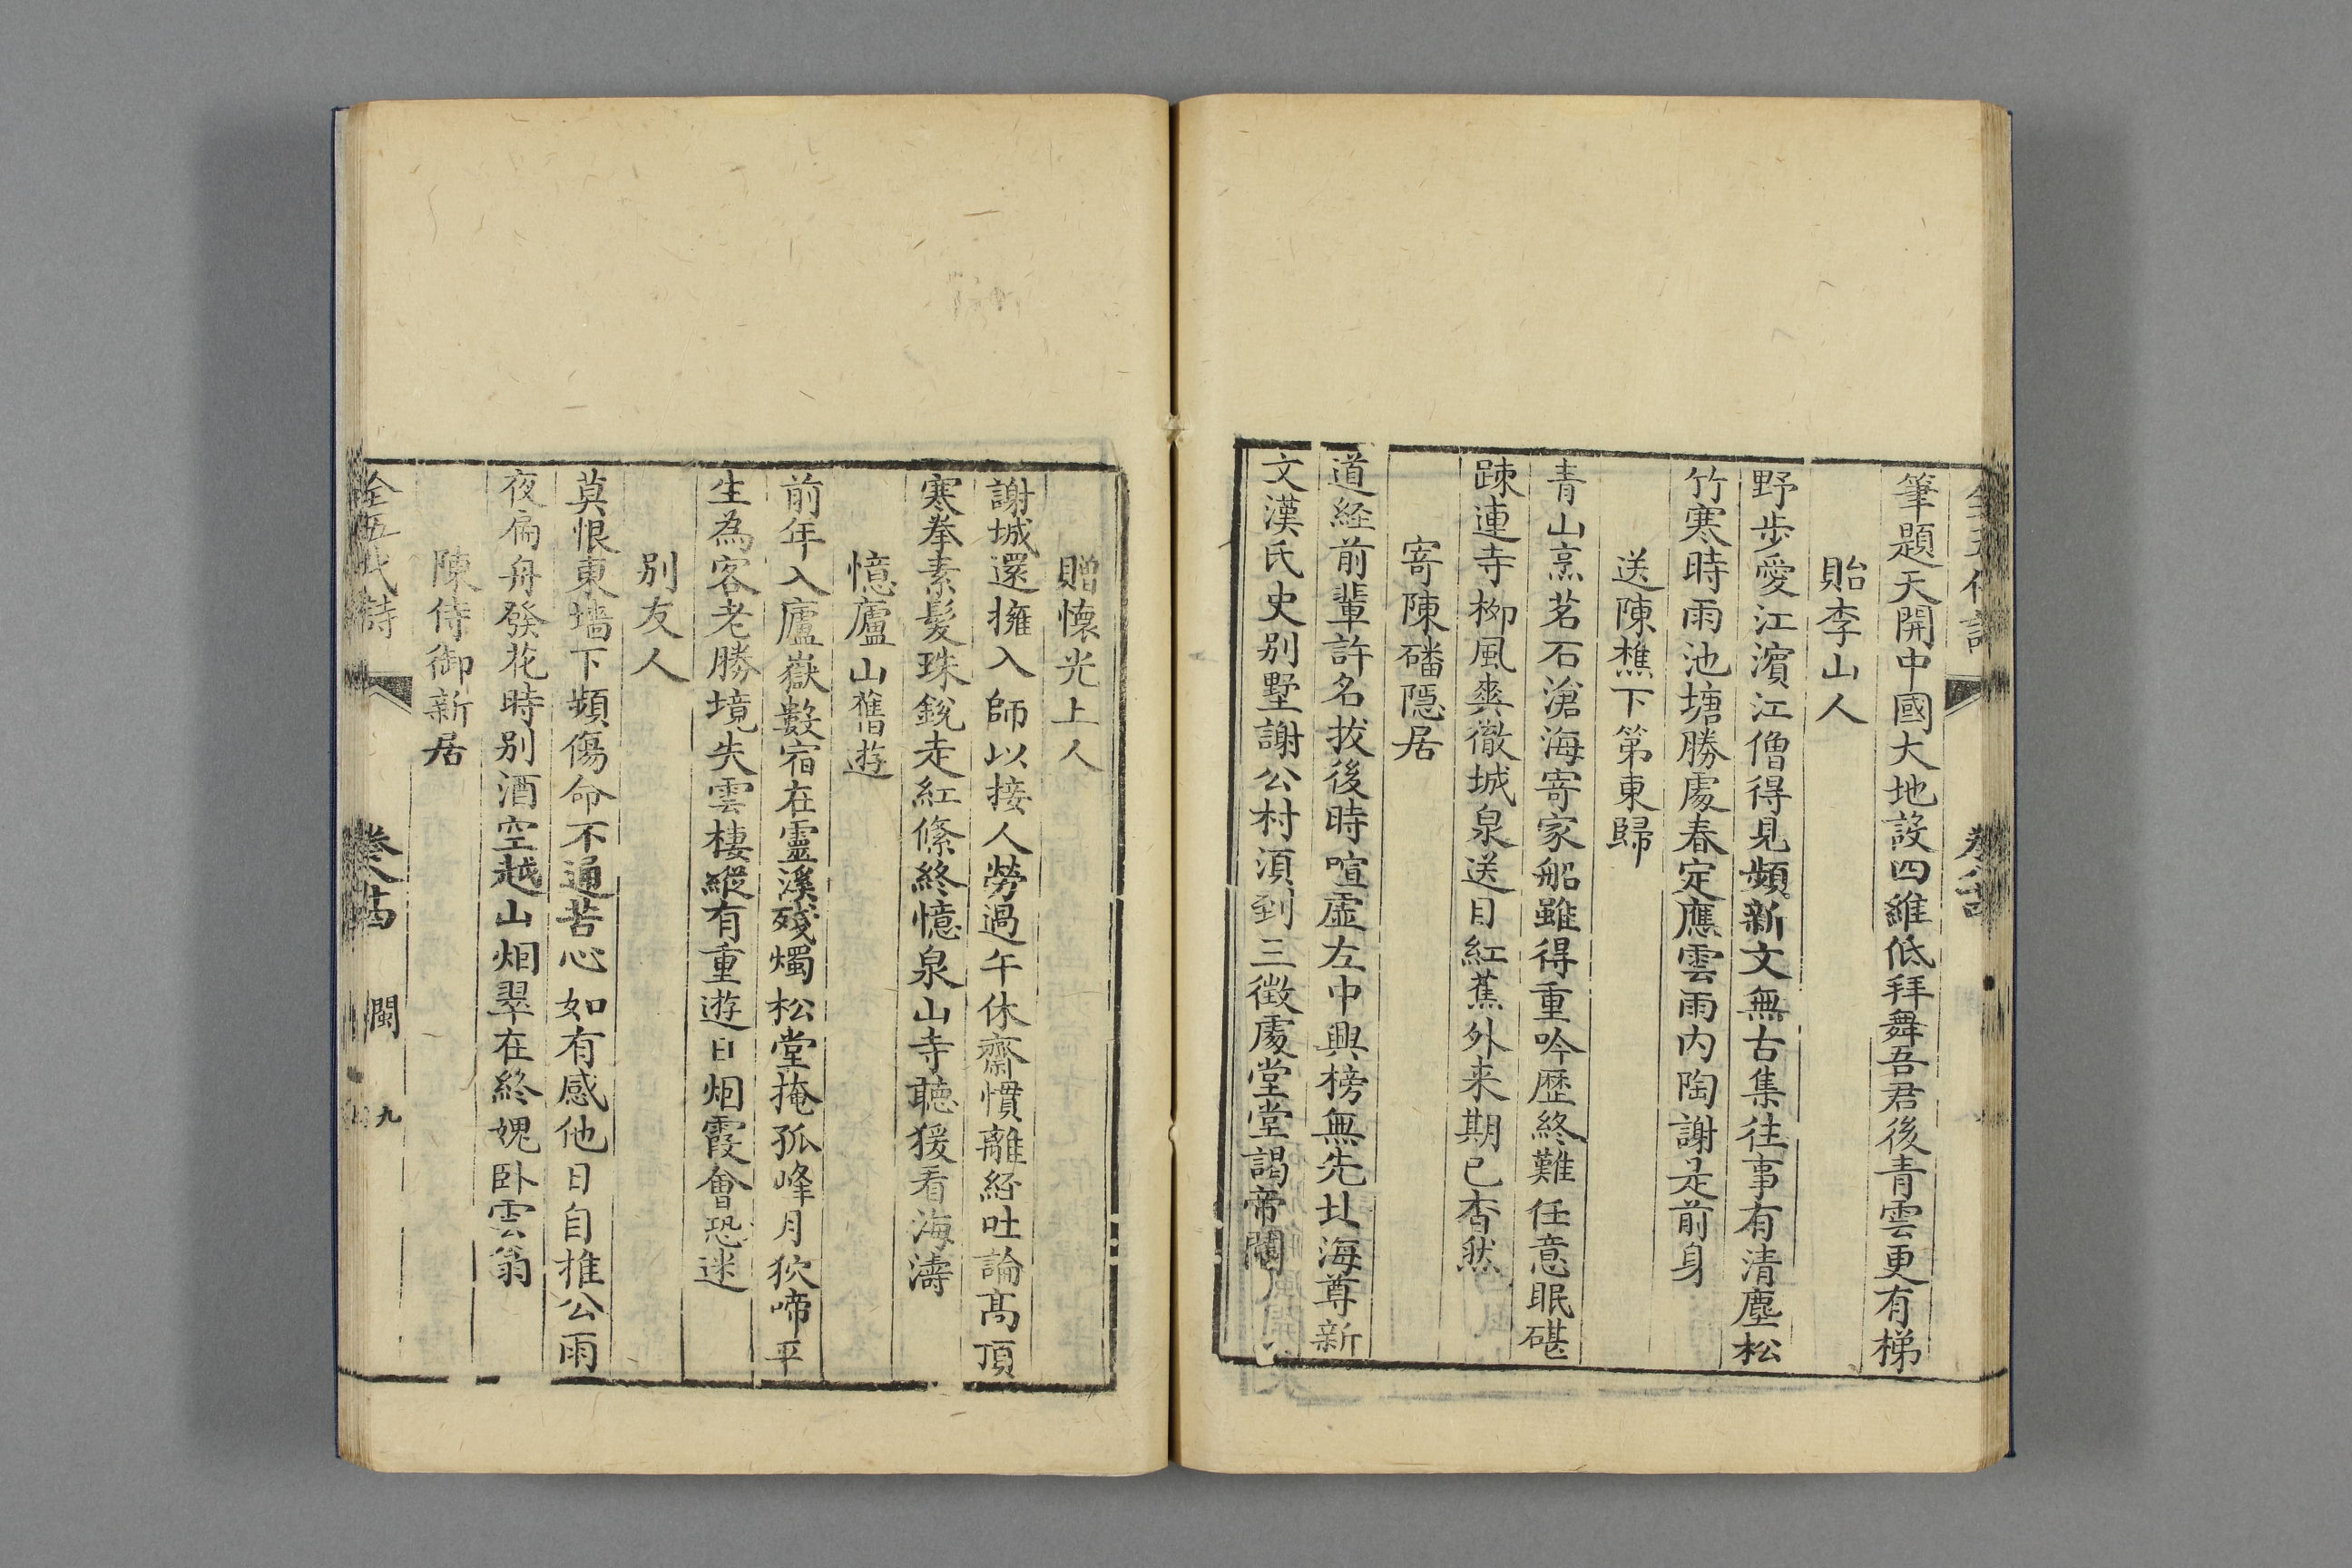 筆題天開中國大地設四維低拜舞吾君後青雲更有梯
貽李山人
野步愛江濵江僧得見頻新文無古集往事有清塵松
竹寒時雨池塘勝處春定應雲雨内陶謝是前身
送陳樵下第東歸
青山烹茗石滄海寄家船雖得重吟歷終難任意眠碪
踈連寺栁風爽徹城泉送目紅蕉外来期已杳然
寄陳磻隠居
道経前輩許名拔後時喧虚左中興榜無先北海尊新
文漢氏史别墅謝公村湏到三徴處堂堂謁帝閽
贈懷光上人
謝城還擁入師以接人勞過午休齋慣離經吐論髙頂
寒拳素髪珠鋭走紅絛終憶泉山寺聽猨看海濤
憶廬山舊遊
前年入廬嶽數宿在靈溪殘燭松堂掩孤峰月狖啼平
生為客老勝境失雲棲縱有重遊日烟霞會恐迷
别友人
莫恨東墻下頻傷命不通苦心如有感他日自推公雨
夜扁舟發花時别酒空越山烟翠在終媿卧雲翁
陳侍御新居
全五代詩 卷八十四 閩 九